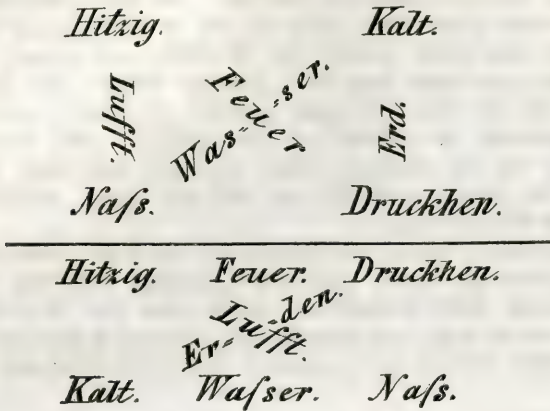 Hitzig. Kalt.
Lufft. Feuer Was⸗⸗ser. Erd.
Naſs. Druckhen.
Hitzig. Feuer. Druckhen.
Lufft. Er⸗⸗den.
Kalt. Waſser. Naſs.